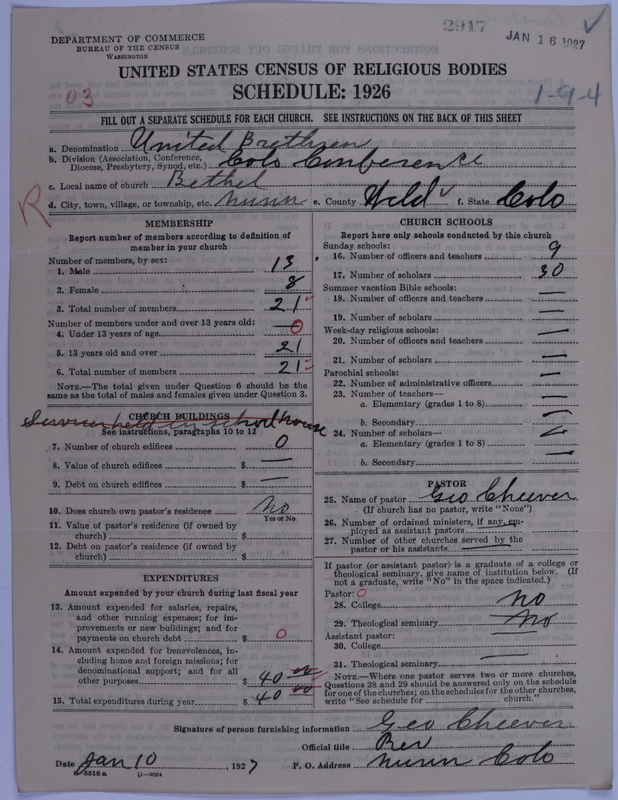 2917
JAN 16 1927
DEPARTMENT OF COMMERCE
BUREAU OF THE CENSUS
WASHINGTON
UNITED STATES CENSUS OF RELIGIOUS BODIES
SCHEDULE: 1926
03
1-9-4
FILL OUT A SEPARATE SCHEDULE FOR EACH CHURCH. SEE INSTRUCTIONS ON THE BACK OF THIS SHEET
a. Denomination United Brethren
b. Division (Association, Conference, Diocese, Presbytery, Synod, etc.) Colo Conference
c. Local name of church Bethel
d. City, town, village, or township, etc. Nunn e. County Weld f. State Colo
R
MEMBERSHIP
Report number of members according to definition of
member in your church
Number of members, by sex:
1. Male 13
2. Female 8
3. Total number of members 21
Number of members under and over 13 years old:
4. Under 13 years of age 0
5. 13 years old and over 21
6. Total number of members 21
NOTE.—The total given under Question 6 should be the
same as the total of males and females given under Question 3.
CHURCH BUILDINGS
Services held in school house
See instructions, paragraphs 10 to 12
7. Number of church edifices 0
8. Value of church edifices $ —
9. Debt on church edifices $ —
10. Does church own pastor's residence No
Yes or No
11. Value of pastor's residence (if owned by
church) $
12. Debt on pastor's residence (if owned by
church) $
EXPENDITURES
Amount expended by your church during last fiscal year
13. Amount expended for salaries, repairs,
and other running expenses; for im-
provements or new buildings; and for
payments on church debt $ 0
14. Amount expended for benevolences, in-
cluding home and foreign missions; for
denominational support; and for all
other purposes $ 40 00
15. Total expenditures during year $ 40 00
CHURCH SCHOOLS
Report here only schools conducted by this church
Sunday schools:
16. Number of officers and teachers 9
17. Number of scholars 30
Summer vacation Bible schools:
18. Number of officers and teachers —
19. Number of scholars —
Week-day religious schools:
20. Number of officers and teachers —
21. Number of scholars —
Parochial schools:
22. Number of administrative officers —
23. Number of teachers—
a. Elementary (grades 1 to 8) —
b. Secondary —
24. Number of scholars—
a. Elementary (grades 1 to 8) —
b. Secondary —
PASTOR
25. Name of pastor Geo Cheever
(If church has no pastor, write "None")
26. Number of ordained ministers, if any, em-
ployed as assistant pastors —
27. Number of other churches served by the
pastor or his assistants —
If pastor (or assistant pastor) is a graduate of a college or
theological seminary, give name of institution below. (If
not a graduate, write "No" in the space indicated.)
Pastor: 0
28. College No
29. Theological seminary No
Assistant pastor:
30. College
31. Theological seminary —
NOTE.—Where one pastor serves two or more churches,
Questions 28 and 29 should be answered only on the schedule
for one of the churches; on the schedules for the other churches,
write "See schedule for church."
Signature of person furnishing information Geo Cheever
Official title Rev
Date Jan 10, 1927 P. O. Address Nunn Colo
8-5518a 11-9054